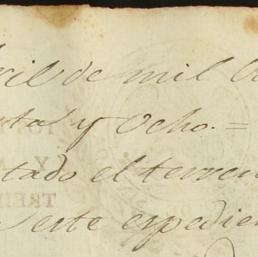 ril de mil O
nta y Ocho. =
tado el terren
este expedien